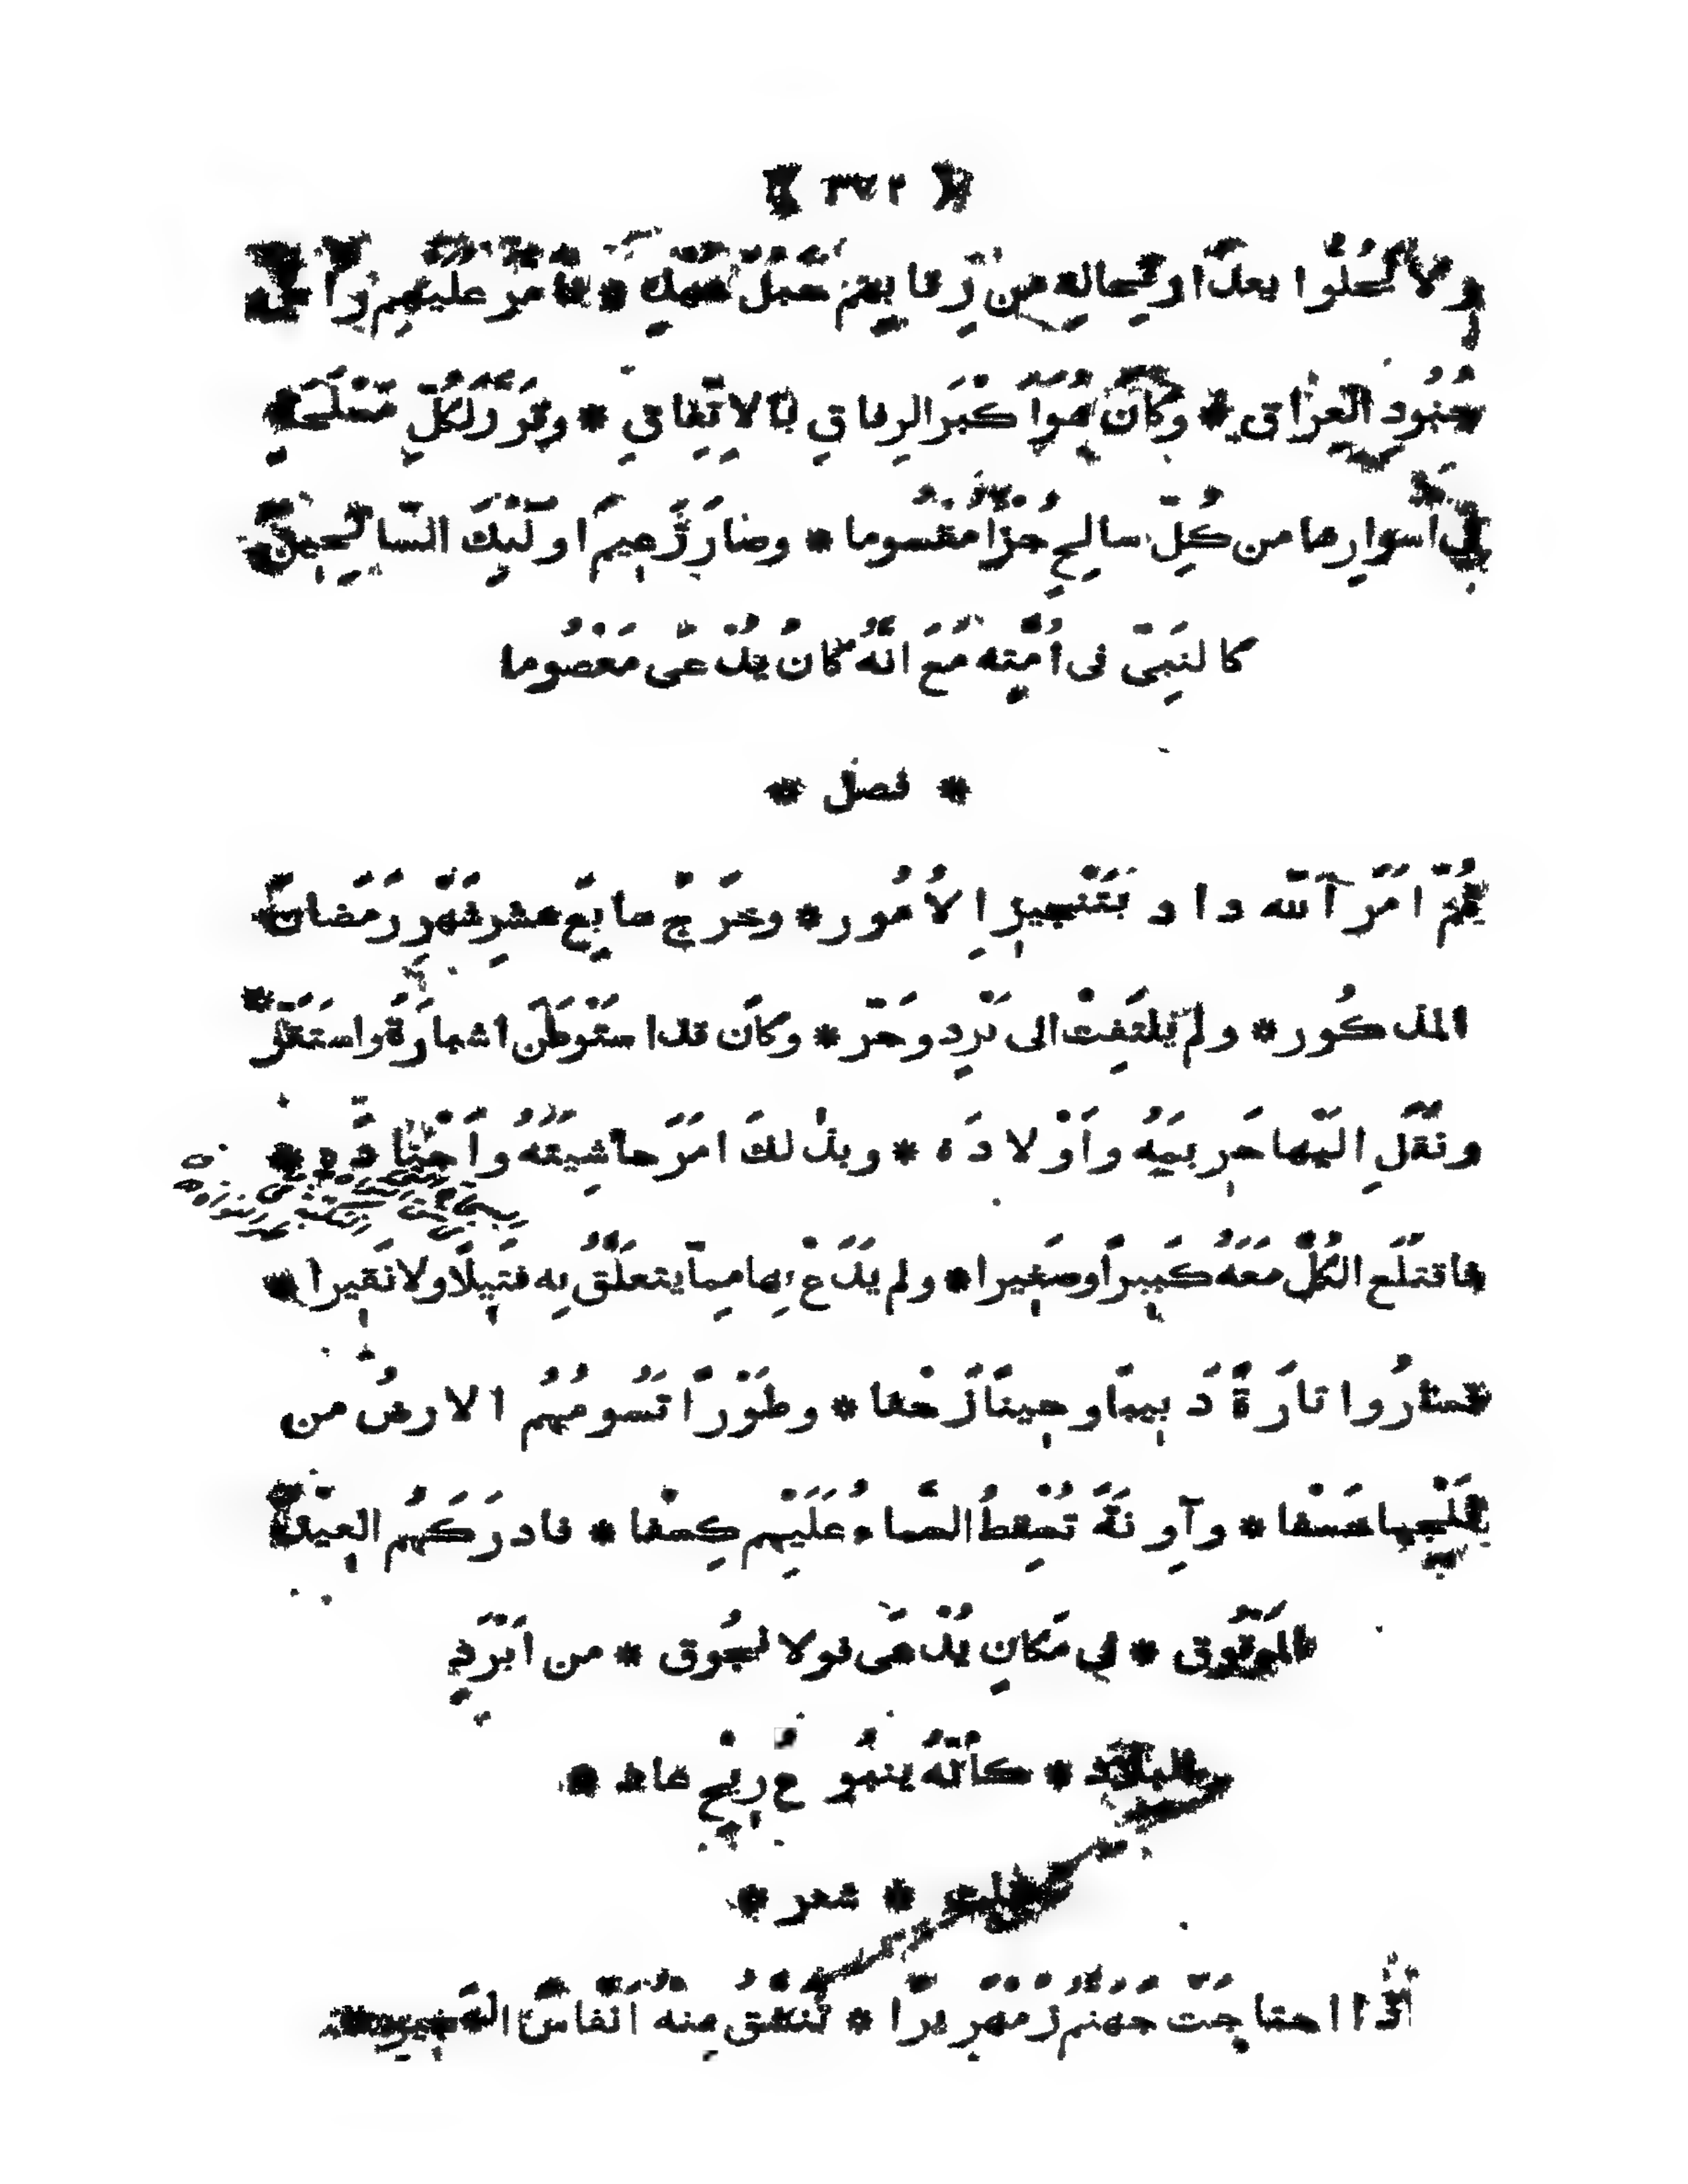 ﴿ ٣٧٢ ﴾
ولا يَحُلُّوا بعدَ اوتحاله من رِقابِهِمْ حَبْلَ * فامر عليهم
جُنُودِ العراقِ * وكانَ هُوَ اَكْبَرَ الرِفاقِ بِالاتِّفاقِ * وقَرَّرَ لكُلِّ مَسْلَحَةٍ
في اسوارها من كُلِّ سالِحٍ جُزْاً مَقْسُوما * وصارَ زَعيمَ اولَئِكَ السّالِحِينَ
كالنَبِيّ فى اُمَّتِه مَعَ انَّهُ كانَ يُدْعَى مَعْصُوما
* فصل *
ثُمَّ امَرَ الله داد بتَنْجِيزِ الاُمُور * وخرَجَ سابِعَ عشرِ شَهْرِ رمَضانَ
المذكُور * ولم يلتَفِتْ الى بَرْدٍ وحَر * وكانَ قد استَوْطَنَ اشبارَةَ واستَقَرَّ *
ونَقَلِ اليها حَرِيمَهُ واَوْلادَه * وبذلكَ امَرَ حاشِيَتَهُ واَجْنادَه *
فاقتَلَع الكُلَّ مَعَهُ كَبِيراً وصَغِيرا * ولم يَدَعْ بِها مِمّا يتعلَّق بِه فتِيلًا ولا نَقيرا *
فسارُوا تارَةً دَبِيباً وحِيناً زَحْفا * وطَوْراً تَسُومُهُم الارضُ من
ثَلْجِها خَسْفا * وآوِنَةً تُسْقِطُ السّماءُ عَلَيْهِم كِسْفا * فادرَكَهُم العِيدُ
المَرْقُوق * في مَكانٍ يُدْعَى قولا نجُوق * من اَبْرَدِ
البلاد * كاَنَّهُ يَنْبُوعُ رِيْحِ عاد *
* شعر *
اذا احتاجَتْ جَهَنَّمُ زمْهَرِيراً * تَنَشَّقُ مِنْهُ اَنْفاسَ